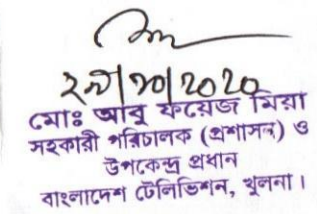 মোঃ আবু ফয়েজ মিয়া
সহকারী পরিচালক (প্রশাসন) ও
উপকেন্দ্র প্রধান
বাংলাদেশ টেলিভিশন, খুলনা।